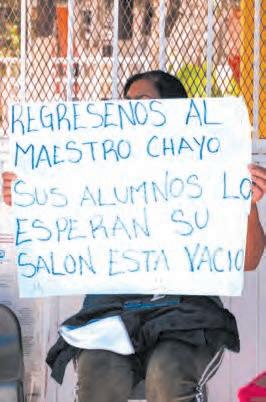 REGRESENOS AL
MAESTRO CHAYO
SUS ALUMNOS LO
ESPERAN SU
SALON ESTA VACIO